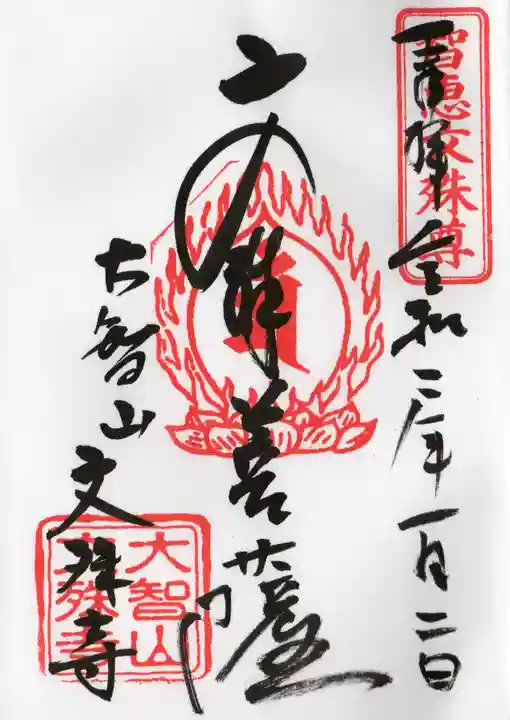 奉拝 令和二年一月二日
智恵文殊尊
文殊菩薩
大智山 文殊寺
大智山
文殊寺